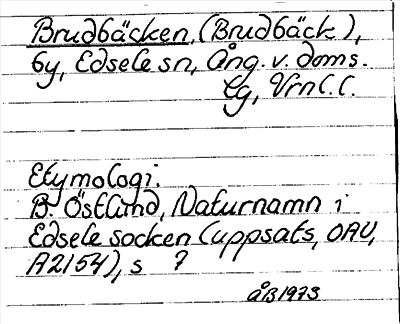 Brudbäcken, (Brudbäck),
by, Edsele sn, Ång. v. doms.
lg, Vrnl. l.
Etymologi.
B. Östlund, Naturnamn i
Edsele socken (uppsats, OAU,
A2154), s 7
ÅB1973